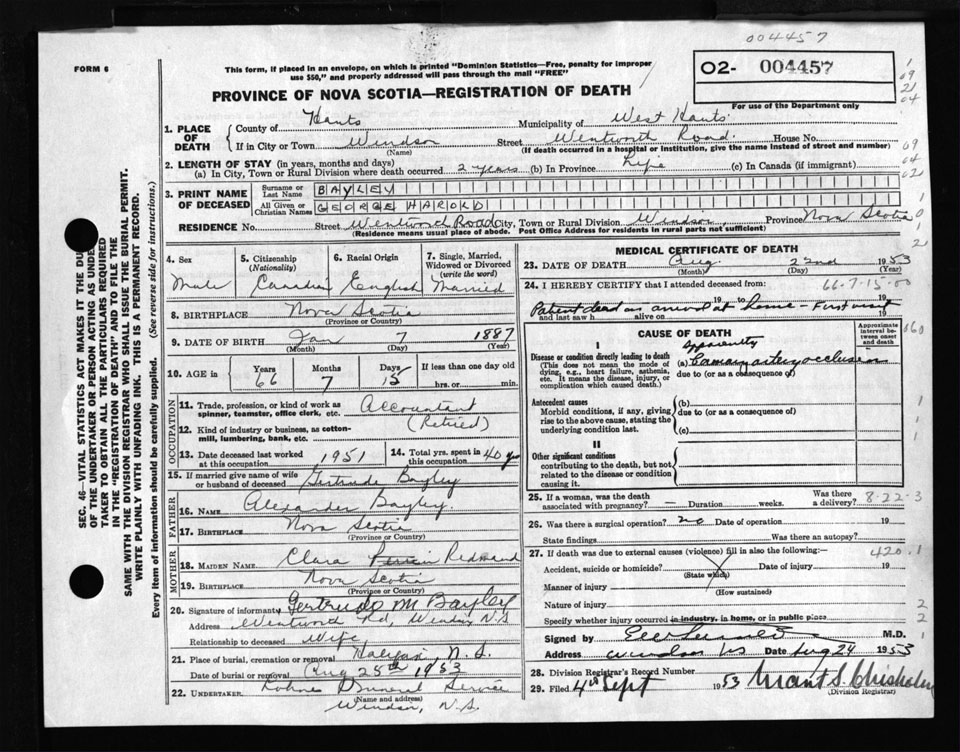 004457
FORM 6
This form, if placed in an envelope, on which is printed "Dominion Statistics—Free, penalty for improper
use $50," and properly addressed will pass through the mail "FREE"
O2- 004457
For use of the Department only
PROVINCE OF NOVA SCOTIA—REGISTRATION OF DEATH
1. PLACE OF DEATH
County of Hants Municipality of West Hants
If in City or Town Windsor Street Wentworth Road. House No.
(Name) (If death occurred in a hospital or institution, give the name instead of street and number)
2. LENGTH OF STAY (in years, months and days)
(a) In City, Town or Rural Division where death occurred 2 years (b) In Province Life (c) In Canada (if immigrant)
3. PRINT NAME OF DECEASED
Surname or Last Name BAYLEY
All Given or Christian Names GEORGE HAROLD
RESIDENCE No. Street Wentwood Road City, Town or Rural Division Windsor Province Nova Scotia
(Residence means usual place of abode. Post Office Address for residents in rural parts not sufficient)
4. Sex Male
5. Citizenship (Nationality) Canadian
6. Racial Origin English
7. Single, Married, Widowed or Divorced (write the word) Married
8. BIRTHPLACE Nova Scotia
(Province or Country)
9. DATE OF BIRTH Jan 7 1887
(Month) (Day) (Year)
10. AGE in Years 66 Months 7 Days 15 If less than one day old hrs. or min.
OCCUPATION
11. Trade, profession, or kind of work as spinner, teamster, office clerk, etc. Accountant
12. Kind of industry or business, as cotton-mill, lumbering, bank, etc. (Retired)
13. Date deceased last worked at this occupation 1951
14. Total yrs. spent in this occupation 40 yrs
15. If married give name of wife or husband of deceased Gertrude Bayley
FATHER
16. NAME Alexander Bayley
17. BIRTHPLACE Nova Scotia
(Province or Country)
MOTHER
18. MAIDEN NAME Clara Redmand
19. BIRTHPLACE Nova Scotia
(Province or Country)
20. Signature of informant Gertrude M Bayley
Address Wentwood Rd, Windsor N.S
Relationship to deceased Wife
21. Place of burial, cremation or removal Halifax, N.S.
Date of burial or removal Aug 25th 1953
22. UNDERTAKER Funeral Service
(Name and address)
Windsor, N.S.
MEDICAL CERTIFICATE OF DEATH
23. DATE OF DEATH Aug. 22nd 1953
(Month) (Day) (Year)
24. I HEREBY CERTIFY that I attended deceased from: 66-7-15-00
19 to 19
Patient dead on arrival at home - First visit
and last saw h alive on 19
CAUSE OF DEATH
Approximate interval between onset and death
I
Disease or condition directly leading to death
(This does not mean the mode of dying, e.g., heart failure, asthenia, etc. It means the disease, injury, or complication which caused death.)
apparently
(a) Coronary artery occlusion
due to (or as a consequence of)
Antecedent causes
Morbid conditions, if any, giving rise to the above cause, stating the underlying condition last.
(b)
due to (or as a consequence of)
(c)
II
Other significant conditions
contributing to the death, but not related to the disease or condition causing it.
25. If a woman, was the death associated with pregnancy? — Duration weeks. Was there a delivery? 8-22-3
26. Was there a surgical operation? no Date of operation 19
State findings Was there an autopsy?
27. If death was due to external causes (violence) fill in also the following: 420.1
Accident, suicide or homicide? Date of injury 19
(State which)
Manner of injury
(How sustained)
Nature of injury
Specify whether injury occurred in industry, in home, or in public place
Signed by M.D.
Address Windsor NS Date Aug 24 1953
28. Division Registrar's Record Number
29. Filed 4th Sept 1953 Grant S. Chisholm
(Division Registrar)
SEC. 46—VITAL STATISTICS ACT MAKES IT THE DUTY
OF THE UNDERTAKER OR PERSON ACTING AS UNDER-
TAKER TO OBTAIN ALL THE PARTICULARS REQUIRED
IN THE "REGISTRATION OF DEATH" AND TO FILE THE
SAME WITH THE DIVISION REGISTRAR WHO SHALL ISSUE THE BURIAL PERMIT.
WRITE PLAINLY WITH UNFADING INK. THIS IS A PERMANENT RECORD.
Every item of information should be carefully supplied. (See reverse side for instructions.)